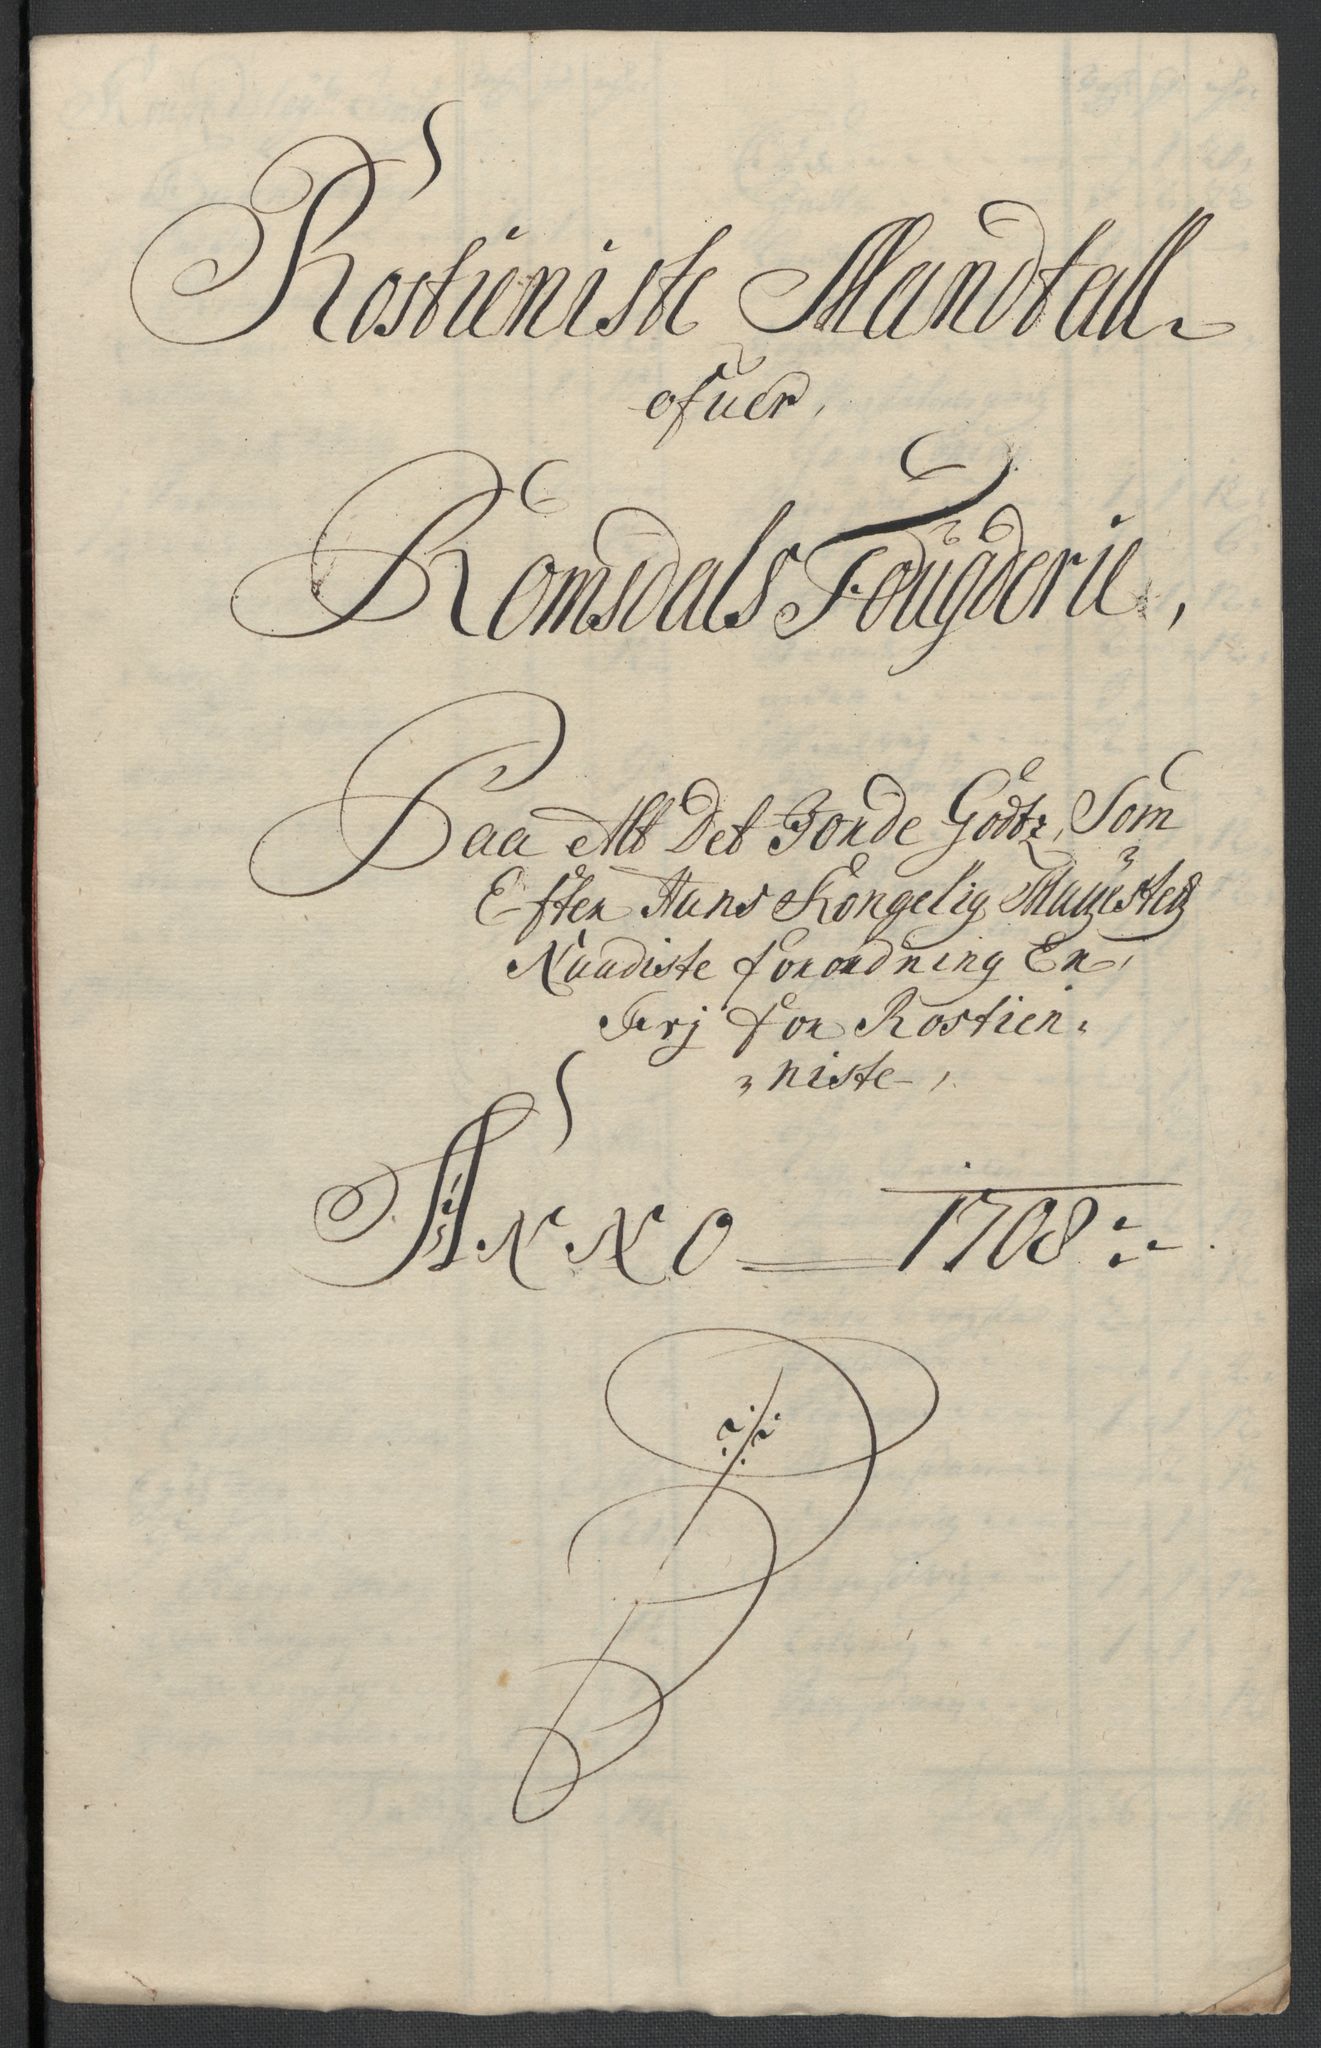 Rostieniste Mandtall
ofuer,
Romsdals Fougderie,
Paa Alt Det Jorde Godtz, Som
Efter Hans Kongelig Mayestets
Naadiste forordning Er,
Frj for Rostien
niste
ANNO 1708